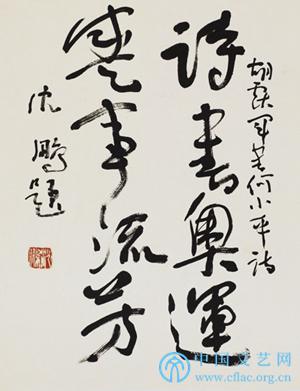 胡军书何小平诗
诗書奥運
盛事流芳
沈鹏题
中国文艺网
www.cflac.org.cn